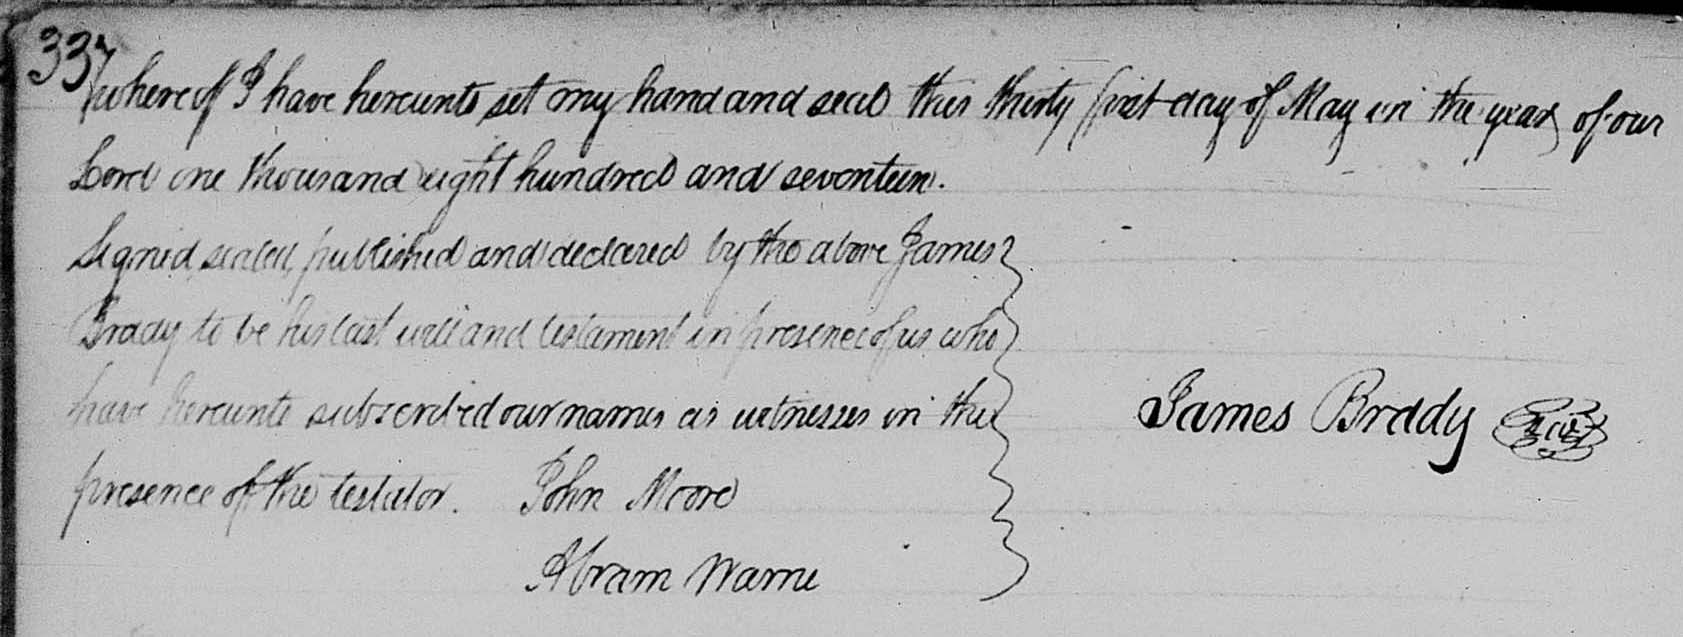 337
whereof I have hereunto set my hand and seal this thirty first day of May in the year of our
Lord one thousand eight hundred and seventeen.
Signed, sealed, published and declared by the above James
Brady to be his last will and testament in presence of us who
have hereunto subscribed our names as witnesses in the
James Brady
presence of the testator. John Moore
Abram Warne